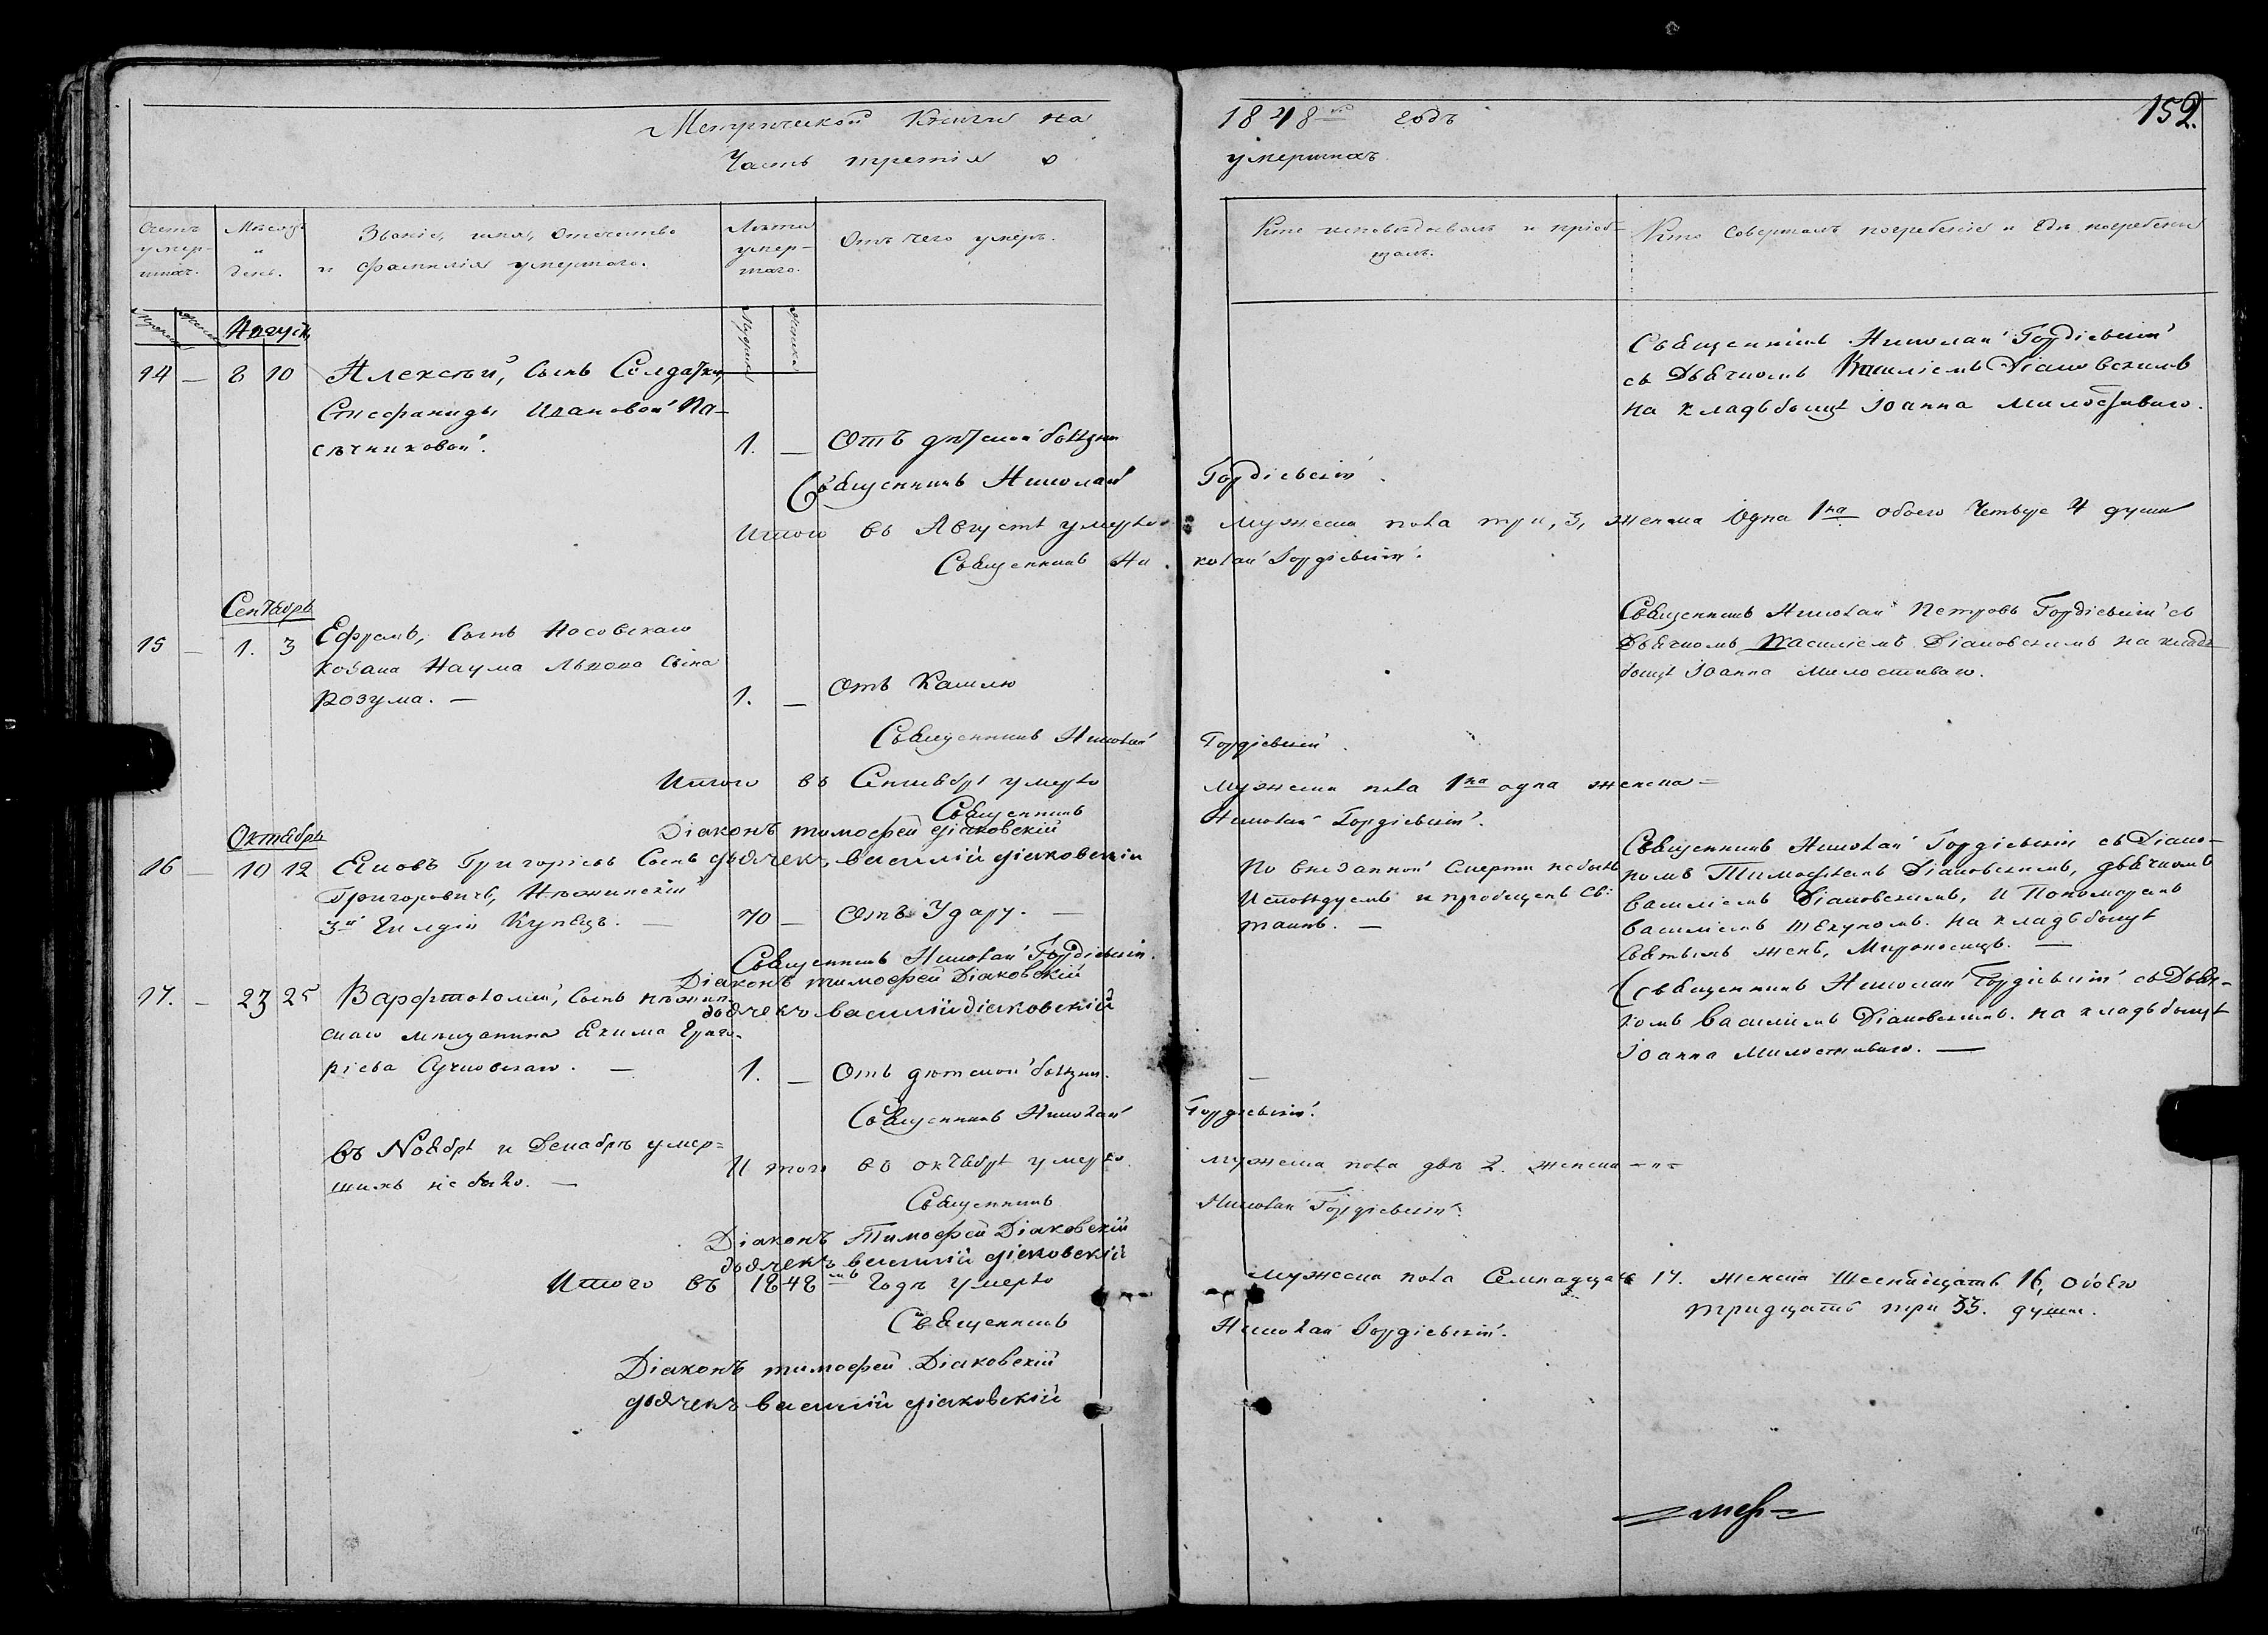 Метрической Книги на 1848й годъ 152.
Часть третія о умершихъ
Счетъ умер-шихъ.
Мѣсяцъ и день.
Званіе, имя, отчество
и фамилія умершаго.
Лѣта умер-шаго.
Отъ чего умеръ.
Кто исповѣдывалъ и пріоб-
щалъ.
Кто совершалъ погребеніе и гдѣ погребены
Августъ
14 — 8 10 Алексѣй, сынъ Солдатки,
Стефаниды Ивановой Па-
сѣчниковой.
1. — Отъ дѣтской болѣзни
Священникъ Николай Гордіевскій
съ Дьячкомъ Василіемъ Діаковскимъ
на кладьбищѣ Іоанна Милостиваго.
Священникъ Николай Гордіевскій.
Итого въ Августѣ умерло Мужеска пола три, 3, женска одна 1на обоего Четыре 4 души
Священникъ Николай Гордіевскій.
Сентябрь
15 — 1. 3 Ефремъ, сынъ Носовскаго
козака Наума Львова сына
Розума. —
1. — Отъ Кашлю
Священникъ Николай Петровъ Гордіевскій съ
Дьячкомъ Василіемъ Діаковскимъ на кладь-
бищѣ Іоанна Милостиваго.
Священникъ Николай Гордіевскій.
Итого въ Сентябрѣ умерло мужеска пола 1на одна женска =
Священникъ Николай Гордіевскій.
Діаконъ тимофей діаковскій
дьячекъ василій діаковскій
Октябрь
16 — 10 12 Яковъ Григорьевъ Сынъ
Григоровичъ, Нѣжинскій
3й Гилдіи Купецъ. —
70 — Отъ Удару. —
По внезапной Смерти небылъ
Исповѣдуемъ и пріобщенъ Св:
таинъ. —
Священникъ Николай Гордіевскій съ Діако-
номъ Тимофѣемъ Діаковскимъ, дьячкомъ
василіемъ Діаковскимъ, и Пономаремъ
василіемъ на кладьбищѣ
Святыхъ женъ, Мироносицъ. —
Священникъ Николай Гордіевскій.
Діаконъ тимофей Діаковскій
дьячекъ василій діаковскій
17. — 23 25 Варфтоломей, сынъ нѣжин-
скаго мещанина Екима Григо-
ріева Сучковскаго. —
1. — Отъ дѣтской болѣзни. —
Священникъ Николай Гордіевскій съ Дьяч-
комъ Василіемъ Діаковскимъ. на кладьбищѣ
Іоанна Милостиваго. —
Священникъ Николай Гордіевскій.
въ Ноябрѣ и Декабрѣ умер=
шихъ не было. —
Итого въ октябрѣ умерло мужеска пола двѣ 2. женска — „ =
Священникъ Николай Гордіевскій.
Діаконъ Тимофей Діаковскій
дьячекъ василій діаковскій
Итого въ 1848мъ Годѣ умерло мужеска пола Семнадцать 17. женска Шестнадцать 16, обоего
тридцать три 33. души.
Священникъ Николай Гордіевскій.
Діаконъ тимофей Діаковскій
дьячекъ василій діаковскій